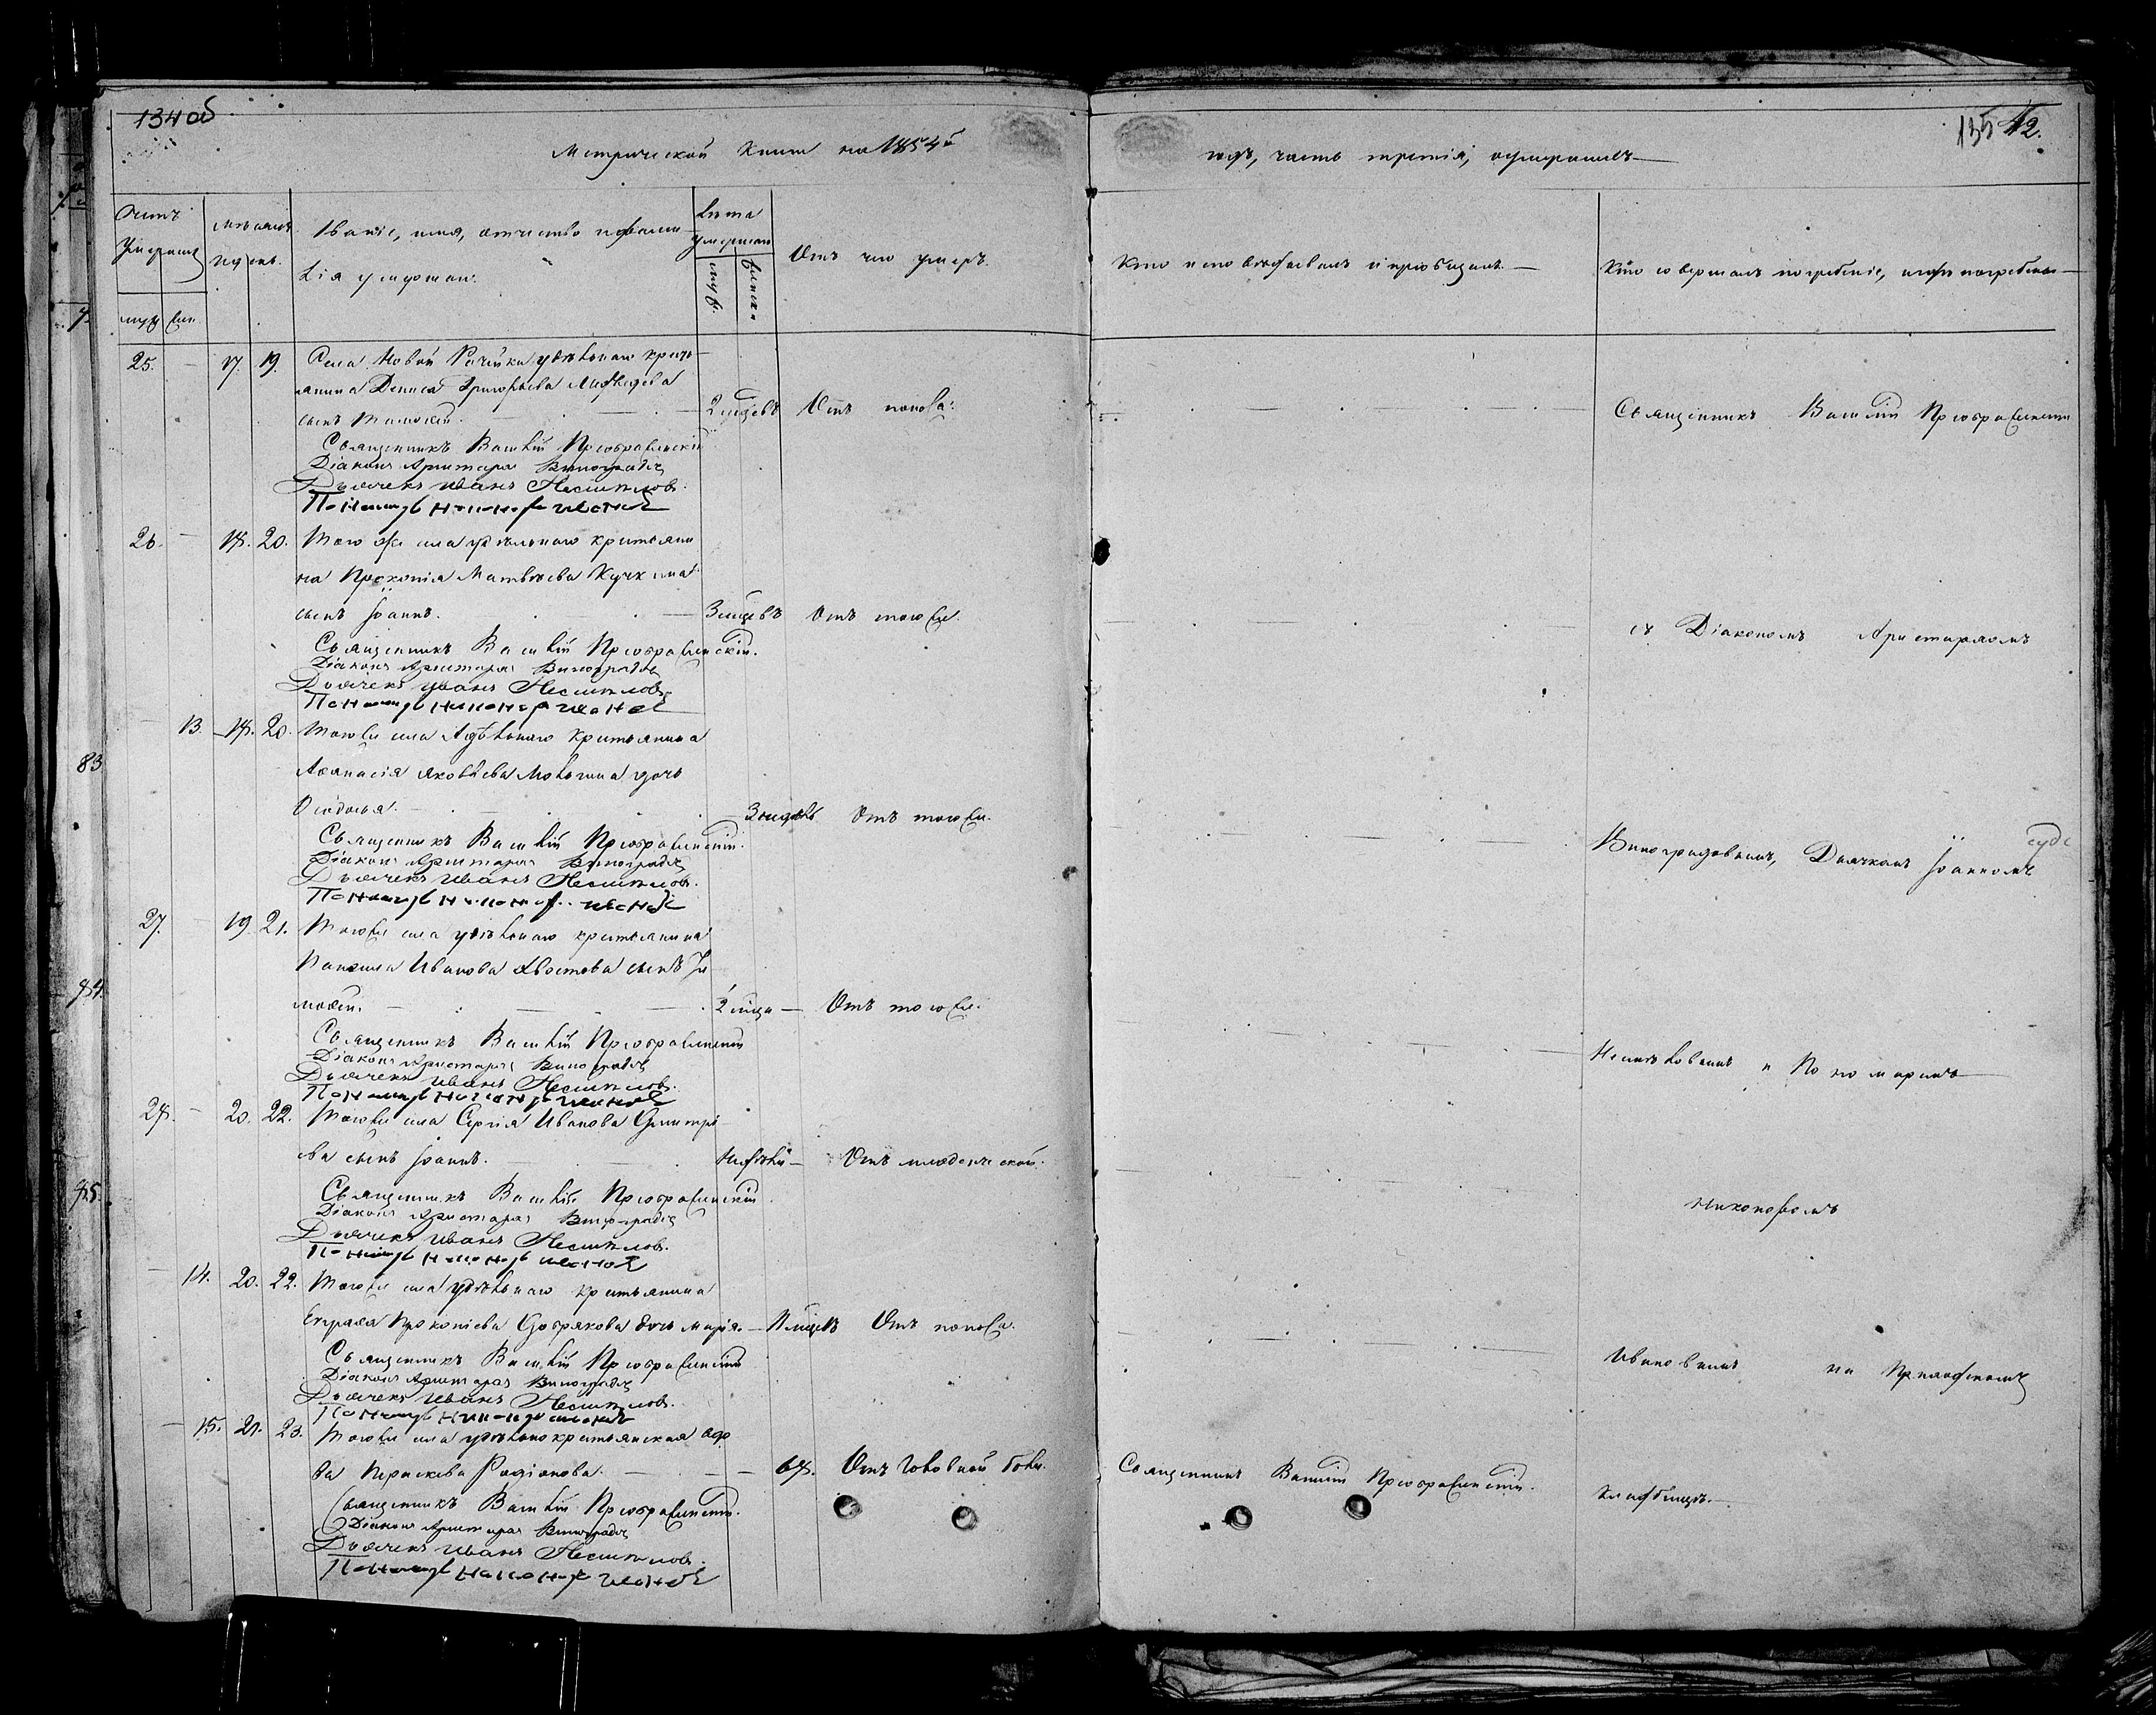 134 об
135 42.
Метрической книги на 1854й
годъ, часть третія, о умершихъ
Счетъ умершихъ
муж. жен.
Мѣсяцъ и день.
Званіе, имя, отчество и фамилія умершаго.
Лѣта умершаго
муж. женска
Отъ чего умеръ.
Кто исповѣдывалъ и пріобщалъ.
Кто совершалъ погребеніе, и гдѣ погребены
25. 17. 19. Села Новой Рачейки удѣльнаго кресть-
янина Дениса Григорьева Медвѣдева
сынъ Тимоѳей. 2 мцевъ Отъ поноса.
Священникъ Василій Преображенскій
Діаконъ Аристархъ Виноградовъ
Дьячекъ Иванъ Несмѣловъ.
Пономарь Никоноръ Ивановъ
26. 18. 20. Того же села удѣльнаго крестьяни
на Прокопія Матвѣева
сынъ Іоаннъ. 3 мцевъ Отъ того же.
Священникъ Василій Преображенскій.
Діаконъ Аристархъ Виноградовъ
Дьячекъ Иванъ Несмѣловъ
Пономарь Никоноръ Ивановъ
13. 18. 20. Того же села Удѣльнаго крестьянина
Аѳанасія Яковлева дочь
Ѳеодосья. 3 мцевъ Отъ того же.
Священникъ Василій Преображенскій.
Діаконъ Аристархъ Виноградовъ
Дьячекъ Иванъ Несмѣловъ.
Пономарь Никоноръ Ивановъ
27. 19. 21. Того же села удѣльнаго крестьянина
Иванова Хвостова сынъ Ти
моѳей. 2 мца Отъ того же.
Священникъ Василій Преображенскій
Діаконъ Аристархъ Виноградовъ
Дьячекъ Иванъ Несмѣловъ.
Пономарь Никоноръ Ивановъ
28. 20. 22. Того же села Сергія Иванова Дмитрі
ева сынъ Іоаннъ. Отъ младенческой.
Священникъ Василій Преображенскій
Діаконъ Аристархъ Виноградовъ
Дьячекъ Иванъ Несмѣловъ.
Пономарь Никоноръ Ивановъ
14. 20. 22. Того же села удѣльнаго крестьянина
Евграфа Прокопіева дочь Марія. Отъ поноса.
Священникъ Василій Преображенскій
Діаконъ Аристархъ Виноградовъ
Дьячекъ Иванъ Несмѣловъ.
Пономарь Никоноръ Ивановъ
15. 21. 23. Того же села удѣльнокрестьянская вдо
ва Параскева Родіонова. 68. Отъ головной боли.
Священникъ Василій Преображенскій.
Діаконъ Аристархъ Виноградовъ
Дьячекъ Иванъ Несмѣловъ.
Пономарь Никоноръ Ивановъ
Священникъ Василій Преображенскій.
Священникъ Василій Преображенскій
съ Діакономъ Аристархомъ
Виноградовымъ, Дьячкомъ Іоанномъ
Несмѣловымъ и Пономаремъ
Никоноромъ
Ивановымъ на Приходскомъ
кладбищѣ.
83
84.
85.